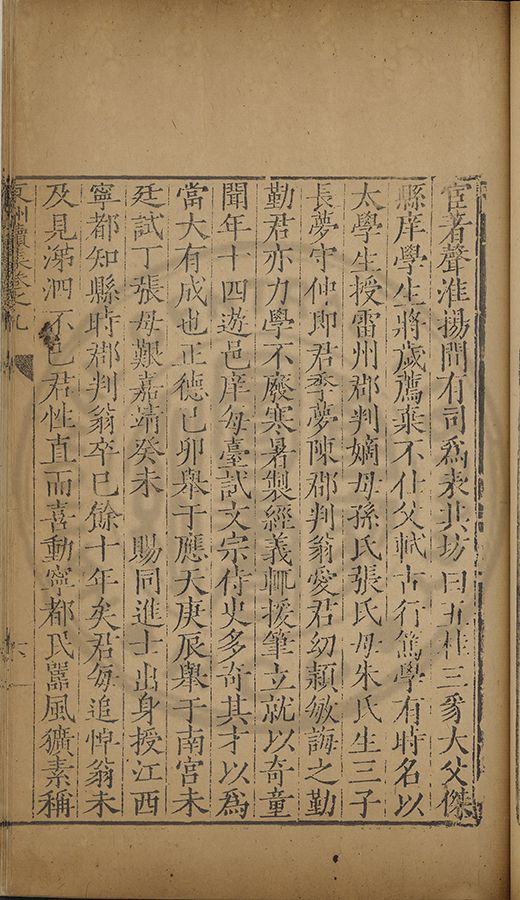 宦著聲淮揚間有司為表其坊曰五桂三爹大父傑
縣庠學生將歲薦棄不仕父軾古行篤學有時名以
太學生授雷州郡判嫡母孫氏張氏母朱氏生三子
長夢守仲即君季夢陳郡判翁愛君幼穎敏誨之勤
勤君亦力學不廢寒暑製經義輒援筆立就以奇童
聞年十四遊邑庠每臺試文宗侍史多奇其才以為
當大有成也正德己卯舉于應天庚辰舉于南宮未
廷試丁張母艱嘉靖癸未　賜同進士出身授江西
寧都知縣時郡判翁卒已餘十年矣君每追悼翁未
及見涕泗不已君性直而喜動寧都民嚚風獷素稱
東洲續集卷之九